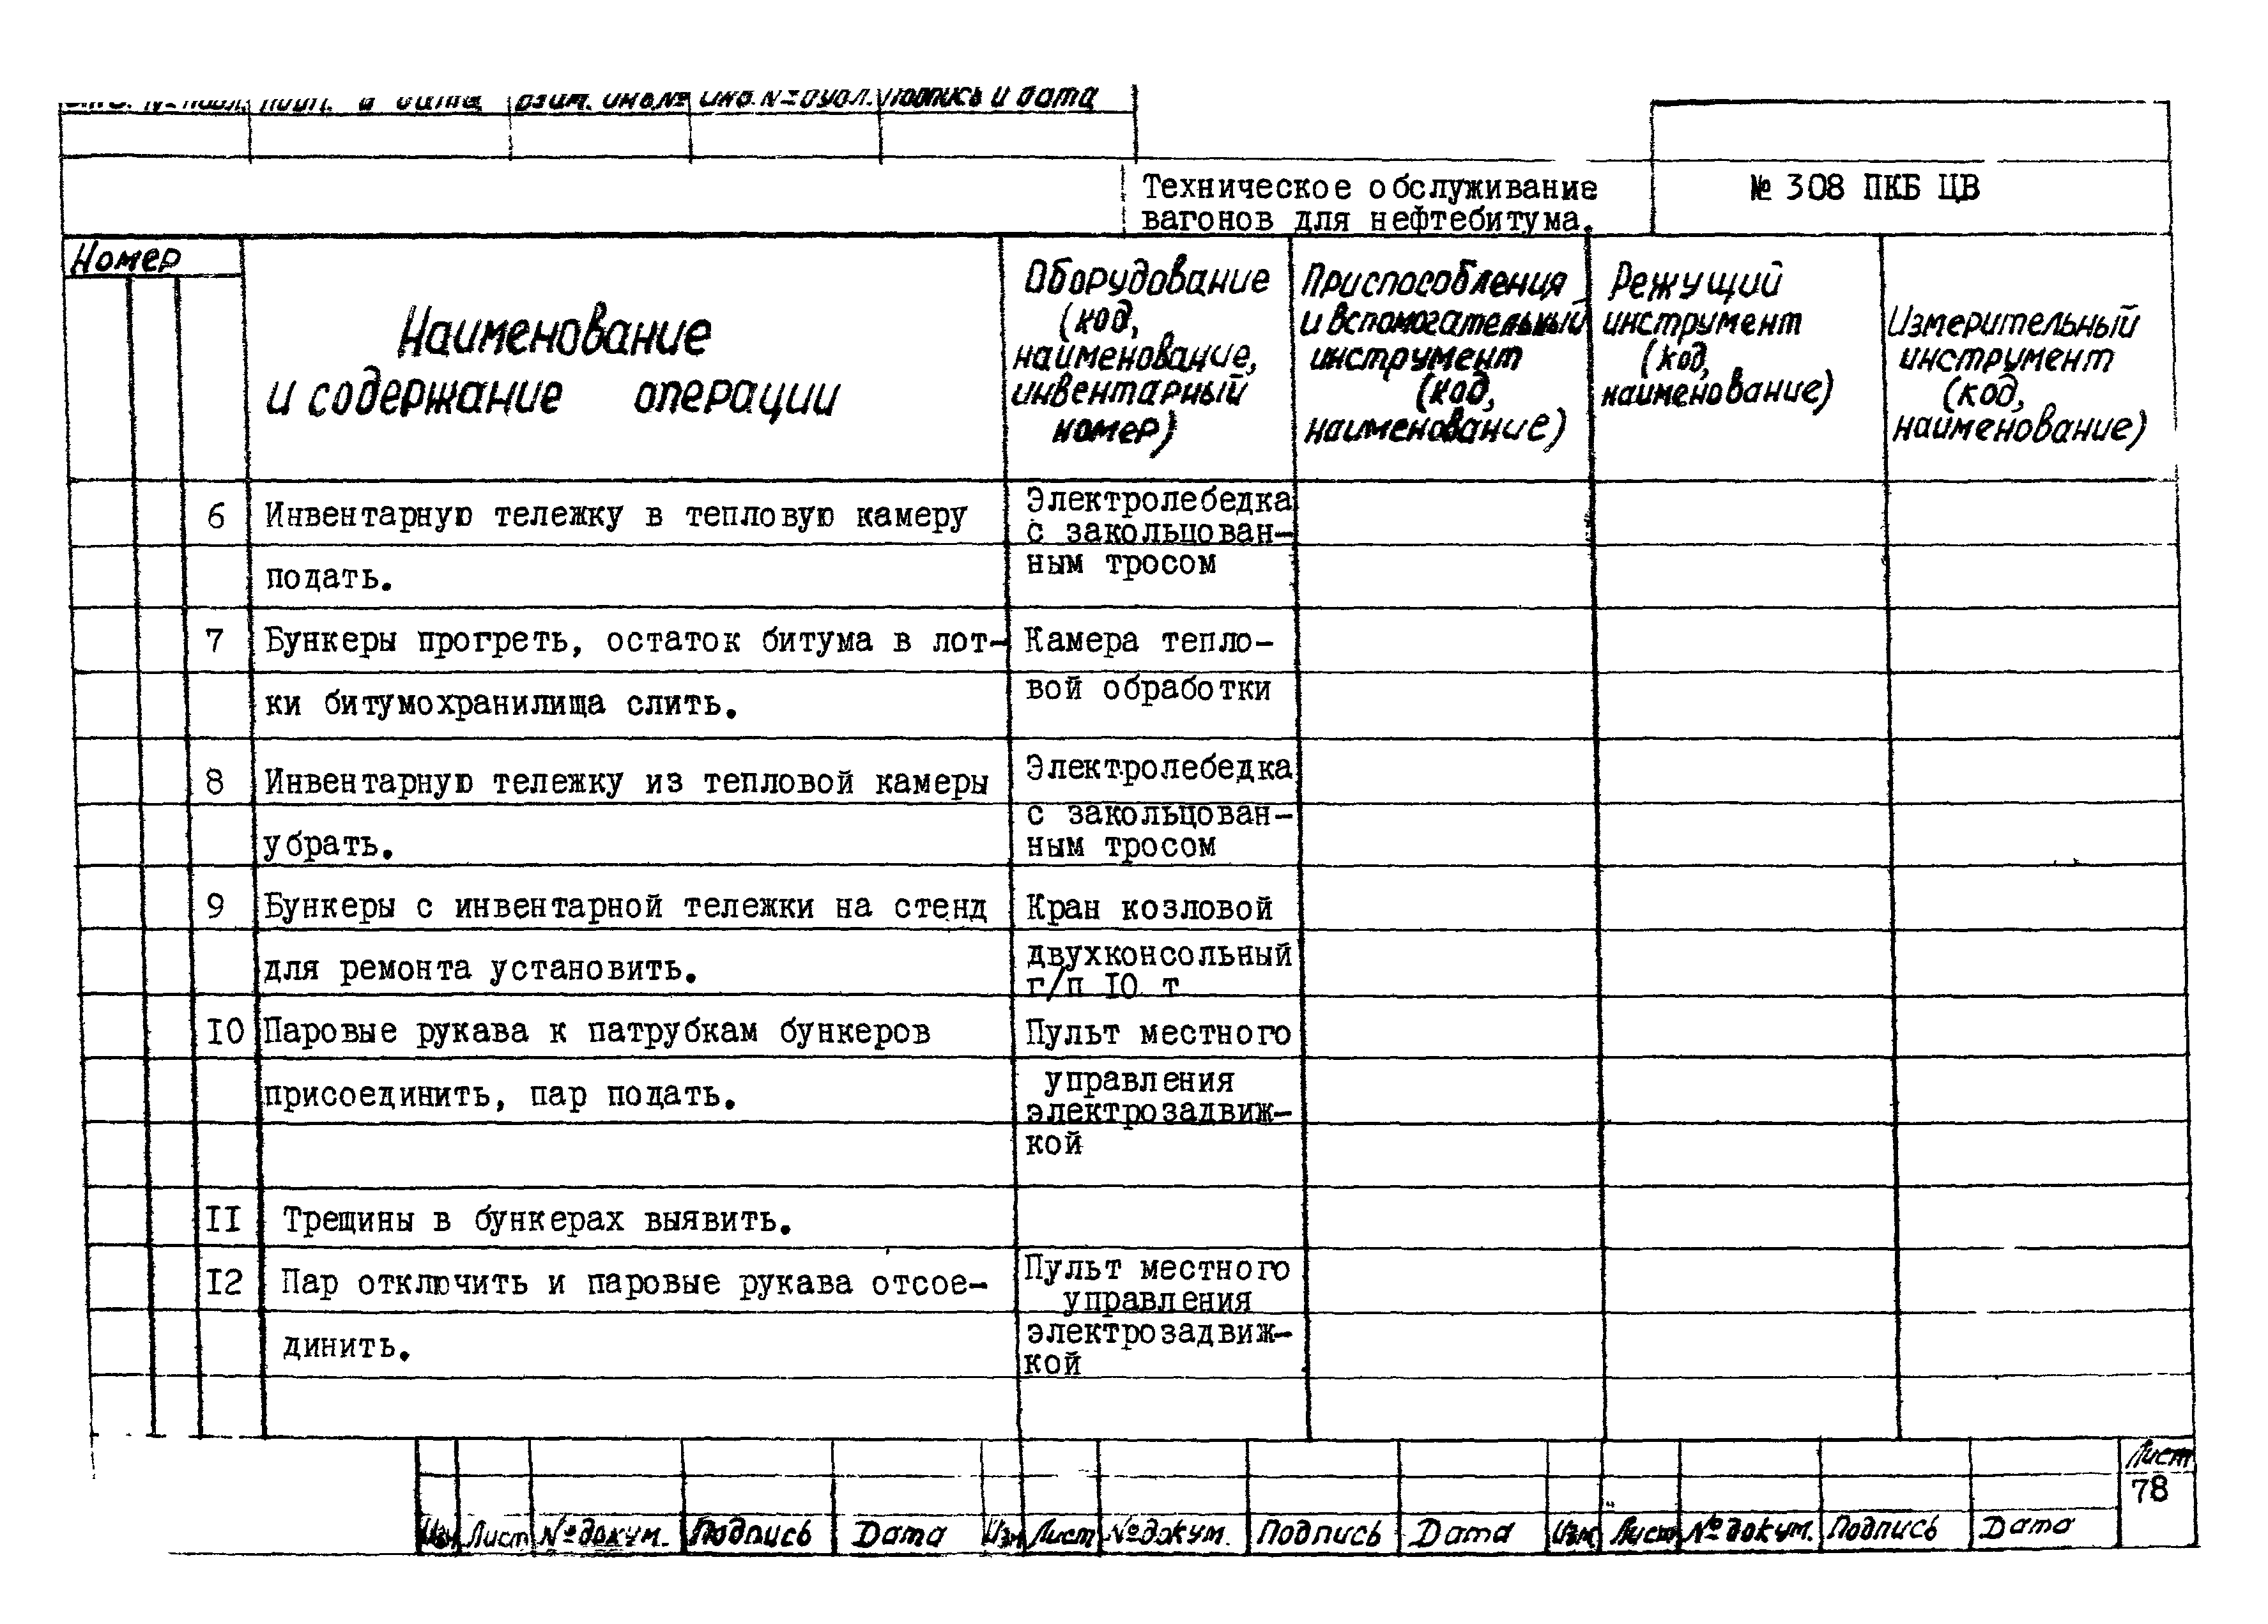 подп. и дата взам. инв.№ инв.№дубл. подпись и дата
Техническое обслуживание
вагонов для нефтебитума.
№ 308 ПКБ ЦВ
Номер
Наименование
и содержание операции
Оборудование
(код,
наименование,
инвентарный
номер)
Приспособления
и вспомогательный
инструмент
(код,
наименование)
Режущий
инструмент
(код,
наименование)
Измерительный
инструмент
(код,
наименование)
6 Инвентарную тележку в тепловую камеру
подать.
Электролебедка
с закольцован-
ным тросом
7 Бункеры прогреть, остаток битума в лот-
ки битумохранилища слить.
Камера тепло-
вой обработки
8 Инвентарную тележку из тепловой камеры
убрать.
Электролебедка
с закольцован-
ным тросом
9 Бункеры с инвентарной тележки на стенд
для ремонта установить.
Кран козловой
двухконсольный
г/п 10 т
10 Паровые рукава к патрубкам бункеров
присоединить, пар подать.
Пульт местного
управления
электрозадвиж-
кой
11 Трещины в бункерах выявить.
12 Пар отключить и паровые рукава отсое-
динить.
Пульт местного
управления
электрозадвиж-
кой
Лист
78
Изм Лист № докум. Подпись Дата Изм Лист № докум. Подпись Дата Изм Лист № докум. Подпись Дата